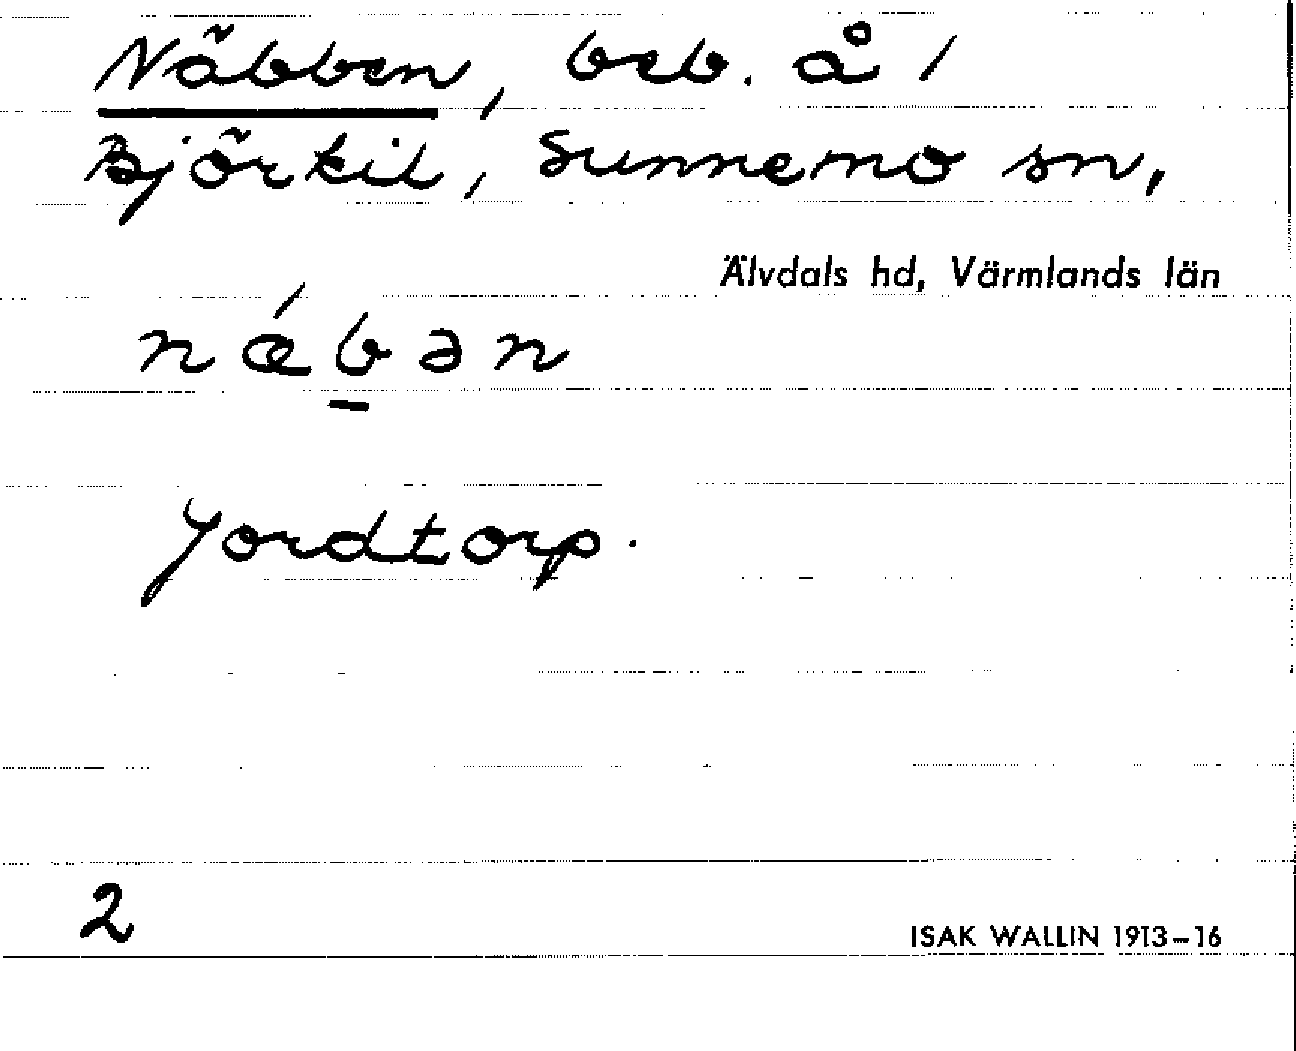 Näbben, beb. å 1
Björkil, Sunnemo sn,
Älvdals hd, Värmlands län
nǽb̲ən
Jordtorp.
2
ISAK WALLIN 1913–16